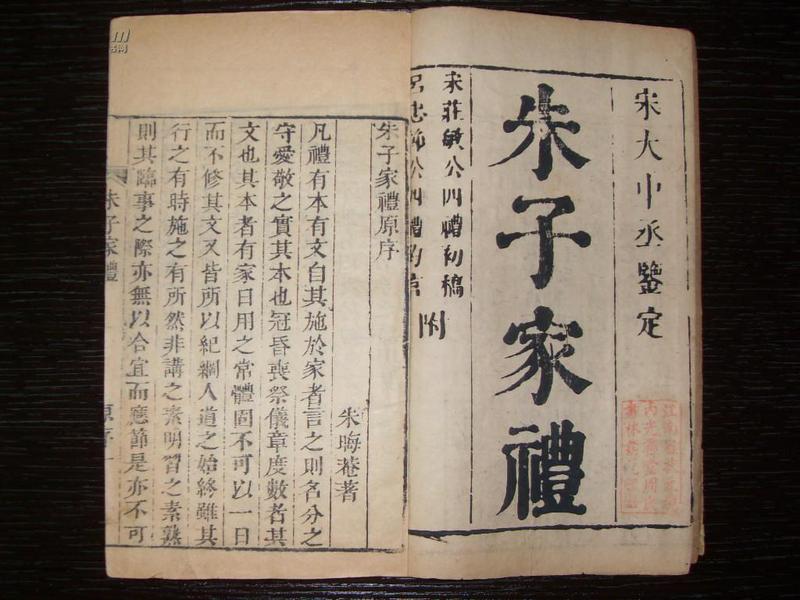 宋大中丞鑒定
朱子家禮
宋莊敏公四禮初稿
呂忠節公四禮約言
附
朱子家禮原序
朱晦菴著
凡禮有本有文自其施於家者言之則名分之
守愛敬之實其本也冠昏喪祭儀章度數者其
文也其本者有家日用之常體固不可以一日
而不修其文又皆所以紀綱人道之始終雖其
行之有時施之有所然非講之素明習之素熟
則其臨事之際亦無以合宜而應節是亦不可
朱子家禮
原序
一